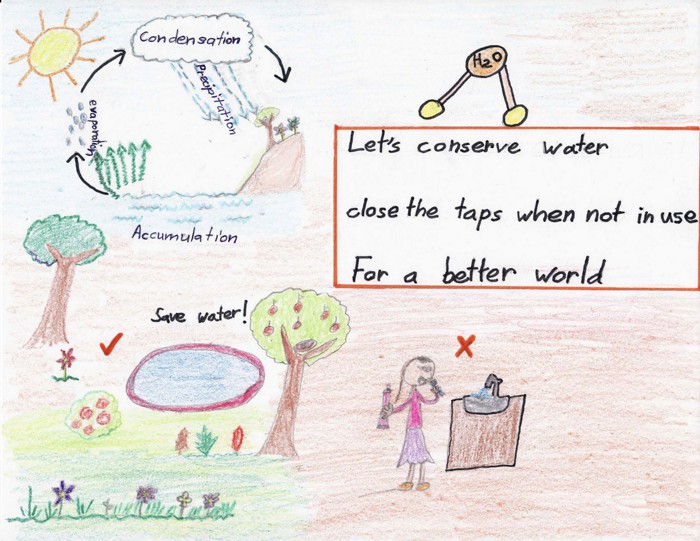 Condensation
Precipitation
evaporation
Accumulation
H2O
Let's conserve water
close the taps when not in use
For a better world
Save water!